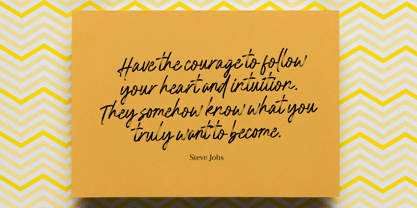 Have the courage to follow
your heart and intuition.
They somehow know what you
truly want to become.
Steve Jobs